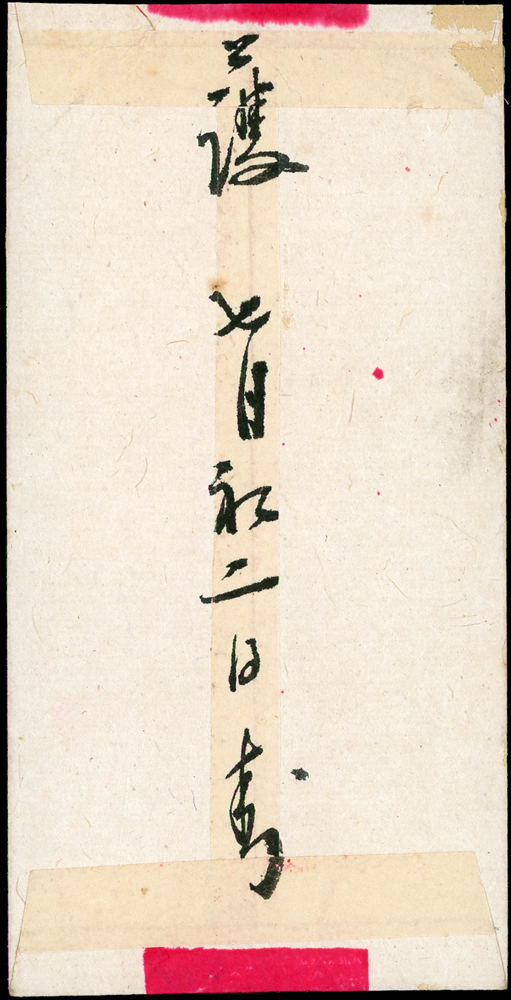 護 七月初二日